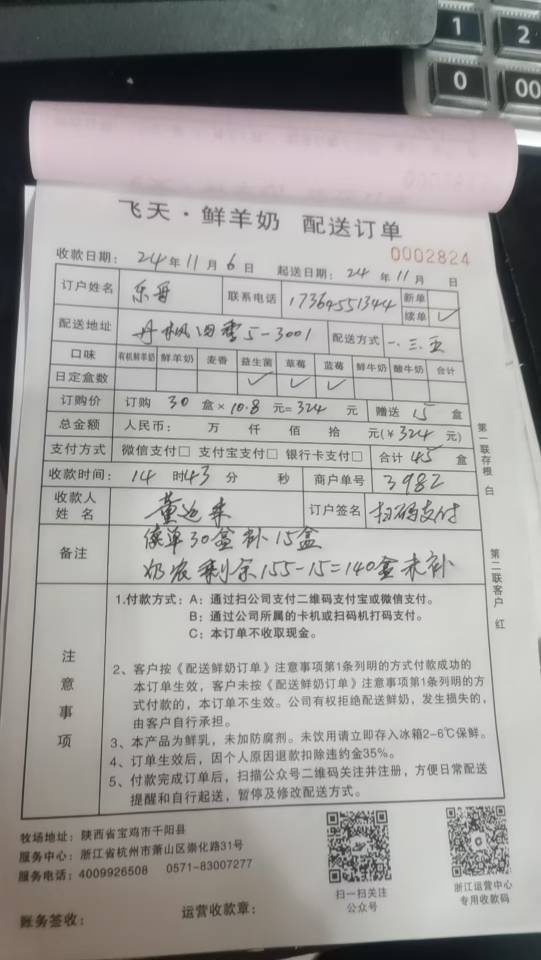 1
2
0
00
飞天·鲜羊奶 配送订单
0002824
收款日期: 24 年 11 月 6 日 起送日期: 24 年 11 月 日
订户姓名 乐哥 联系电话 17364551344 新单
续单 ✓
配送地址 丹枫四季5-3001 配送方式 一.三.五
口味 有机鲜羊奶 鲜羊奶 麦香 益生菌 草莓 蓝莓 鲜牛奶 酸牛奶 合计
日定盒数 ✓ ✓ ✓
订购价 订购 30 盒×10.8 元=324 元 赠送 15 盒
总金额 人民币: 万 仟 佰 拾 元(¥324元)
支付方式 微信支付□ 支付宝支付□ 银行卡支付□ 合计 45 盒
收款时间: 14 时 43 分 秒 商户单号 3982
收款人姓名 董 订户签名 扫码支付
备注 续单30盒补15盒
奶农剩余155-15=140盒未补
第一联存根 白
第二联客户 红
注意事项
1.付款方式: A: 通过扫公司支付二维码支付宝或微信支付。
B: 通过公司所属的卡机或扫码机打码支付。
C: 本订单不收取现金。
2、客户按《配送鲜奶订单》注意事项第1条列明的方式付款成功的
本订单生效, 客户未按《配送鲜奶订单》注意事项第1条列明的方
式付款的, 本订单不生效。公司有权拒绝配送鲜奶, 发生损失的,
由客户自行承担。
3、本产品为鲜乳, 未加防腐剂。未饮用请立即存入冰箱2-6℃保鲜。
4、订单生效后, 因个人原因退款扣除违约金35%。
5、付款完成订单后, 扫描公众号二维码关注并注册, 方便日常配送
提醒和自行起送, 暂停及修改配送方式。
牧场地址: 陕西省宝鸡市千阳县
服务中心: 浙江省杭州市萧山区崇化路31号
服务电话: 4009926508 0571-83007277
扫一扫关注
公众号
浙江运营中心
专用收款码
账务签收: 运营收款章: